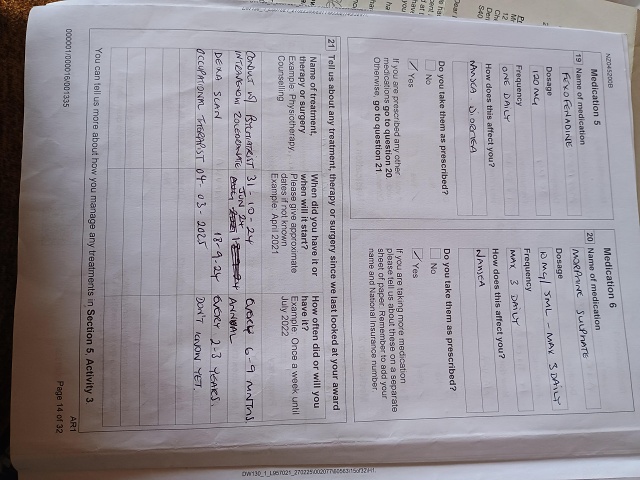 NZ045200B
Medication 5
19 Name of medication
FEXOFENADINE
Dosage
120 MG
Frequency
ONE DAILY
How does this affect you?
NAUSEA DIORHEA
Do you take them as prescribed?
No
Yes
If you are prescribed any other
medications go to question 20
Otherwise, go to question 21
Medication 6
20 Name of medication
MORPHINE SULPHATE
Dosage
10 MG / 5ML - MAX 3 DAILY
Frequency
MAX 3 DAILY
How does this affect you?
NAUSEA
Do you take them as prescribed?
No
Yes
If you are taking more medication
please tell us about these on a separate
sheet of paper. Remember to add your
name and National Insurance number
21 Tell us about any treatment, therapy or surgery since we last looked at your award
Name of treatment, therapy or surgery
Example: Physiotherapy, Counselling
When did you have it or when will it start?
Please give approximate dates if not known
Example: April 2021
How often did or will you have it?
Example: Once a week until July 2022
CONSULT W/ PSYCHIATRIST 31-10-24 EVERY 6-9 MNTHS.
INTRAVENOUS ZOLEDRONATE JUN 24 ANNUAL
DEXA SCAN 18-9-24 EVERY 2-3 YEARS.
OCCUPATIONAL THERAPIST 04-03-2025 DON'T KNOW YET.
You can tell us more about how you manage any treatments in Section 5, Activity 3.
AR1
Page 14 of 32